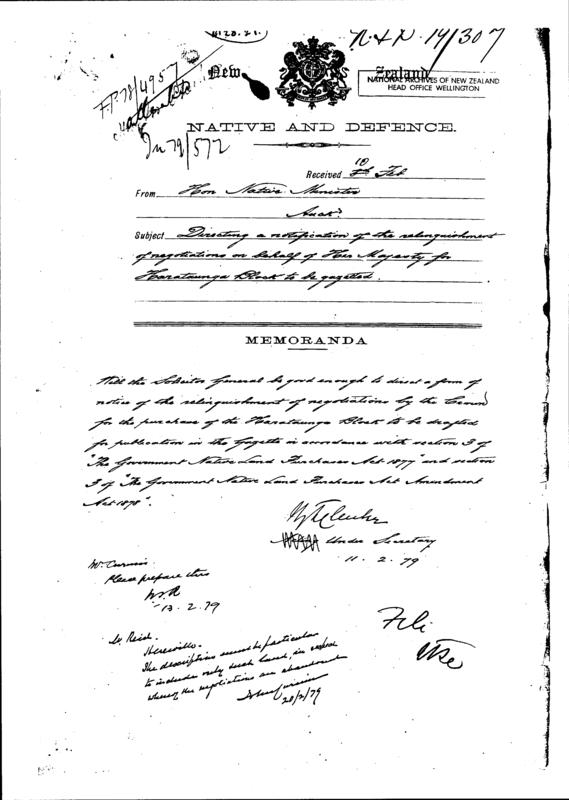 N & D. 79/307
New Zealand
NATIONAL ARCHIVES OF NEW ZEALAND
HEAD OFFICE WELLINGTON
N&D 78/4957
In 79/572
NATIVE AND DEFENCE.
Received 10 Feb
From Hon Native Minister
Auckd
Subject Directing a notification of the relinquishment
of negotiations on behalf of Her Majesty for
Harataunga Block to be gazetted.
MEMORANDA
Will the Solicitor General be good enough to direct a form of
notice of the relinquishment of negotiations by the Crown
for the purchase of the Harataunga Block to be drafted
for publication in the Gazette in accordance with section 3 of
"The Government Native Land Purchases Act 1877" and section
3 of "The Government Native Land Purchases Act Amendment
Act 1878".
Under Secretary
11. 2. 79
Mr Curnin
Please prepare this
W.R
13. 2. 79
Mr Reid.
Herewith.
The description must be particular
to include only such land, in respect
whereof the negotiations are abandoned
28/2/79
File